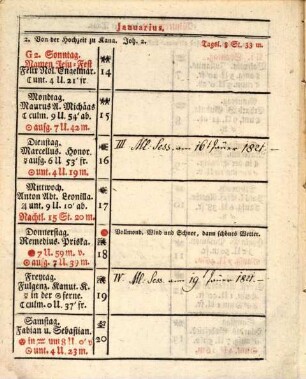 Januarius.
2. Von der Hochzeit zu Kana. Joh. 2. Tagsl. 8 St. 33 m.
G 2. Sonntag.
Namen Jesu-Fest
Felix Nol. Engelmar. 14
☾ unt. 4 U. 21' fr.
Mondtag.
Maurus A. Michäas 15
☾ culm. 9 U. 54' ab.
⊙ aufg. 7 U. 42 m.
Dienstag. III All. Sess. am 16t Jäner 1821. —
Marcellus. Honor. 16
♀ aufg. 6 U. 53' fr.
⊙ unt. 4 U. 19 m.
Mittwoch.
Anton Abt. Leonilla 17
♃ unt. 9 U. 10' ab.
Nachtl. 15 St. 20 m.
Donnerstag. Vollmond. Wind und Schnee, dann schönes Wetter.
Remedius. Priska. 18
7 U. 59 m. v.
⊙ aufg. 7 U. 39 m.
Freytag. IV. All. Sess. am 19t Jäner 1821. —
Fulgenz. Kanut. K. 19
☿ in der ⊙ ferne.
☾ culm. 0 U. 37' fr.
Samstag.
Fabian u. Sebastian. 20
⊙ in ♒ um 8 U. 0' v
⊙ unt. 4 U. 23 m.